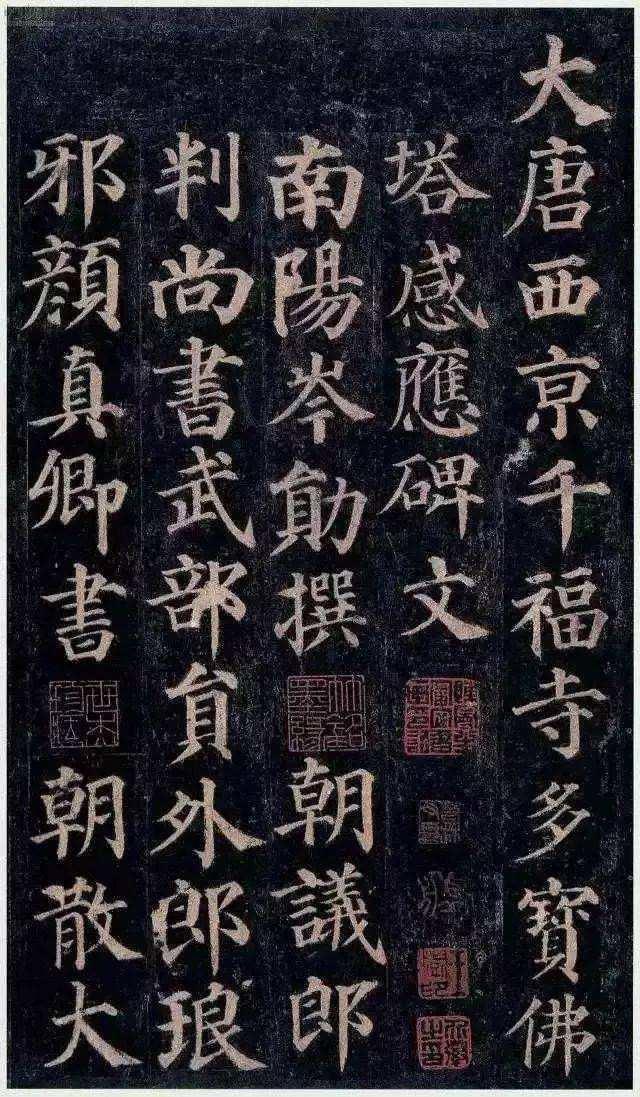 大唐西京千福寺多寶佛
塔感應碑文
南陽岑勛撰朝議郎
判尚書武部員外郎琅
邪顏真卿書朝散大